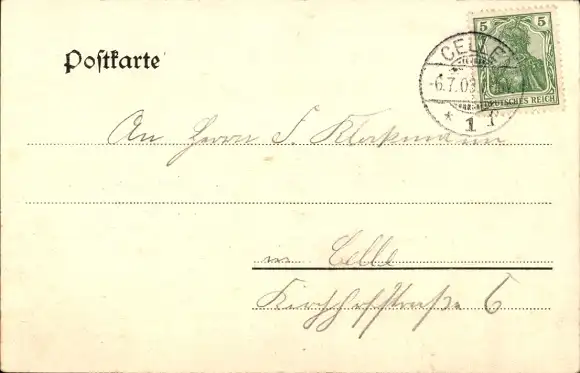 Postkarte
5 5
DEUTSCHES REICH
CELLE
-6.7.03
* 1 f
An Herrn F. Klockmann
in Celle
Kirchhofstraße 6